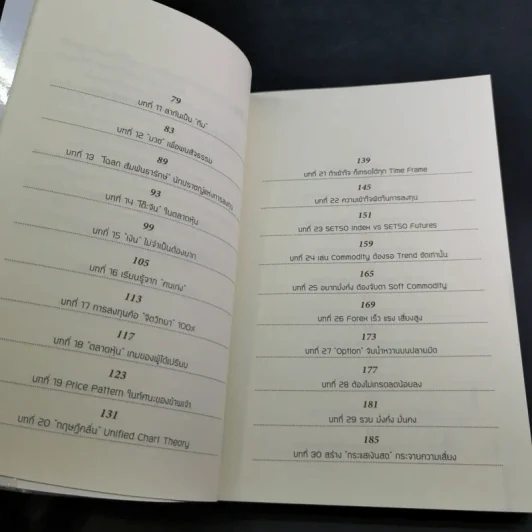 79
บทที่ 11 ล่ากันเป็น "ทีม"
83
บทที่ 12 "มวย" เพื่อพบสัจธรรม
89
บทที่ 13 "โฉลก สัมพันธารักษ์" นักปราชญ์แห่งการลงทุน
93
บทที่ 14 ในตลาดหุ้น
99
บทที่ 15 "เงิน" ไม่จำเป็นต้องมาก
105
บทที่ 16 เรียนรู้จาก "คนเก่ง"
113
บทที่ 17 การลงทุนคือ "จิตวิทยา" 100%
117
บทที่ 18 "ตลาดหุ้น" เกมของผู้ได้เปรียบ
123
บทที่ 19 Price Pattern ในทัศนะของข้าพเจ้า
131
บทที่ 20 "ทฤษฎีคลื่น" Unified Chart Theory
139
บทที่ 21 ถ้าเข้าใจ ก็เทรดได้ทุก Time Frame
145
บทที่ 22 ความเข้าใจผิดในการลงทุน
151
บทที่ 23 SET50 Index VS SET50 Futures
159
บทที่ 24 เล่น Commodity ต้องรอ Trend ชัดเท่านั้น
165
บทที่ 25 อยากมั่งคั่ง ต้องจับตา Soft Commodity
169
บทที่ 26 Forex เร็ว แรง เสี่ยงสูง
173
บทที่ 27 "Option" จิบน้ำหวานบนปลายมีด
177
บทที่ 28 ต้องไม่เทรดสดน้อยลง
181
บทที่ 29 รวย มั่งคั่ง มั่นคง
185
บทที่ 30 สร้าง "กระแสเงินสด" กระจายความเสี่ยง